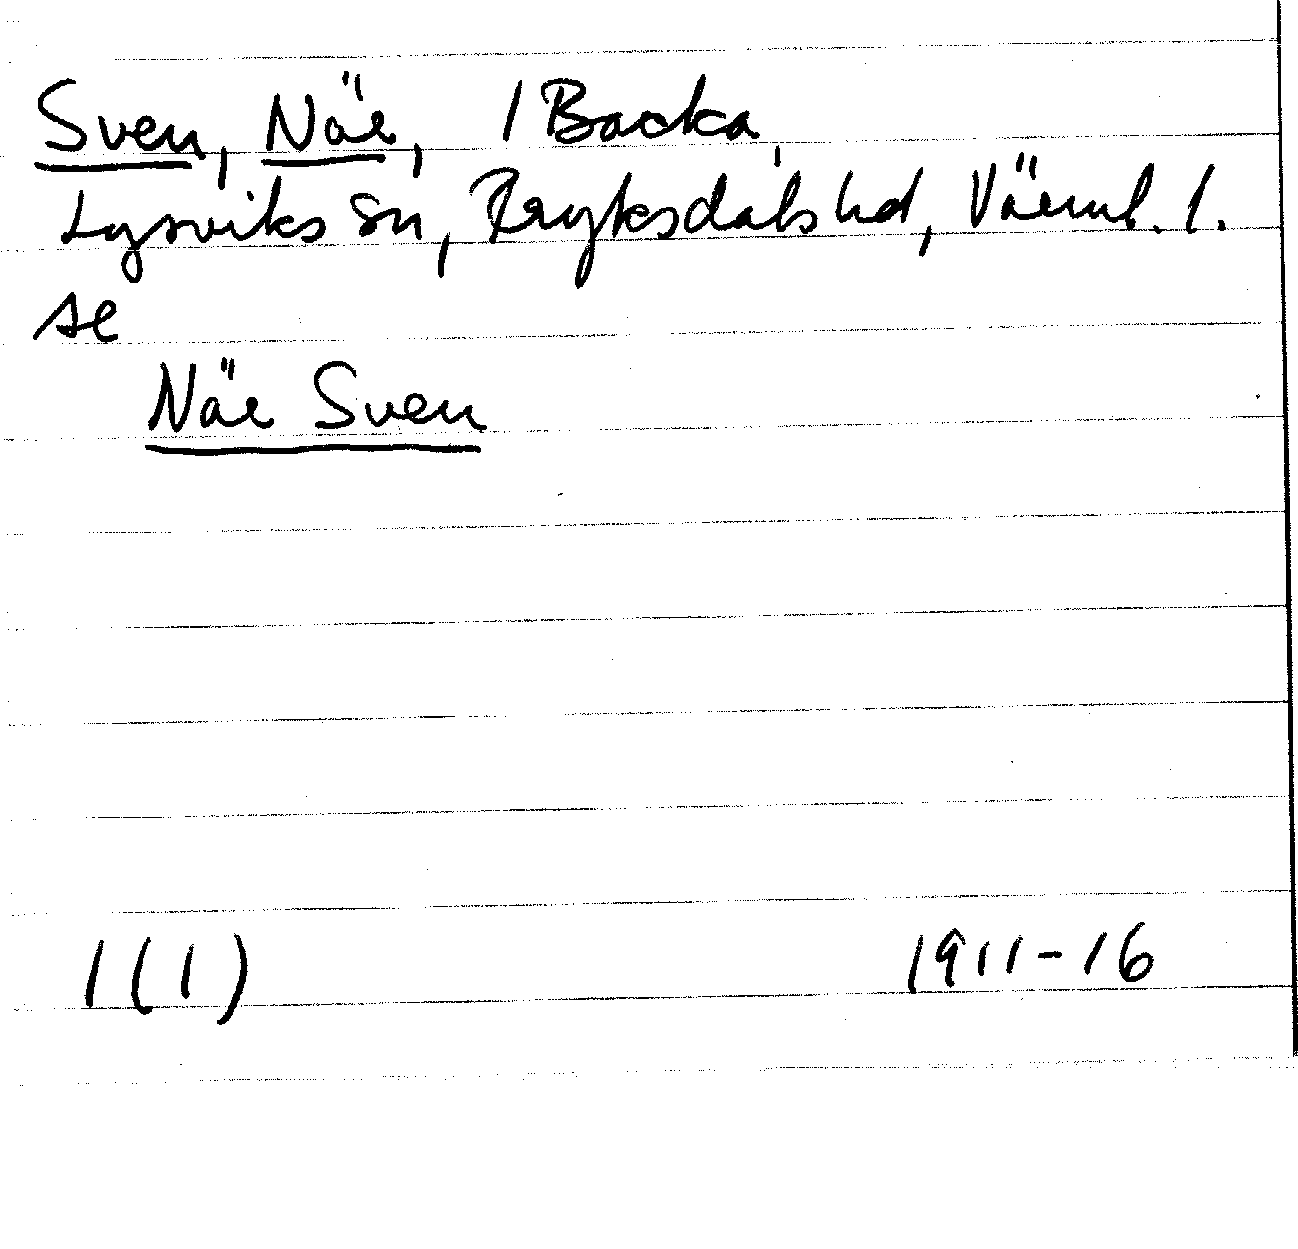 Sven, Näe, / Backa,
Lysviks sn, Fryksdals hd, Värml. l.
se
Näe Sven
1(1) 1911-16